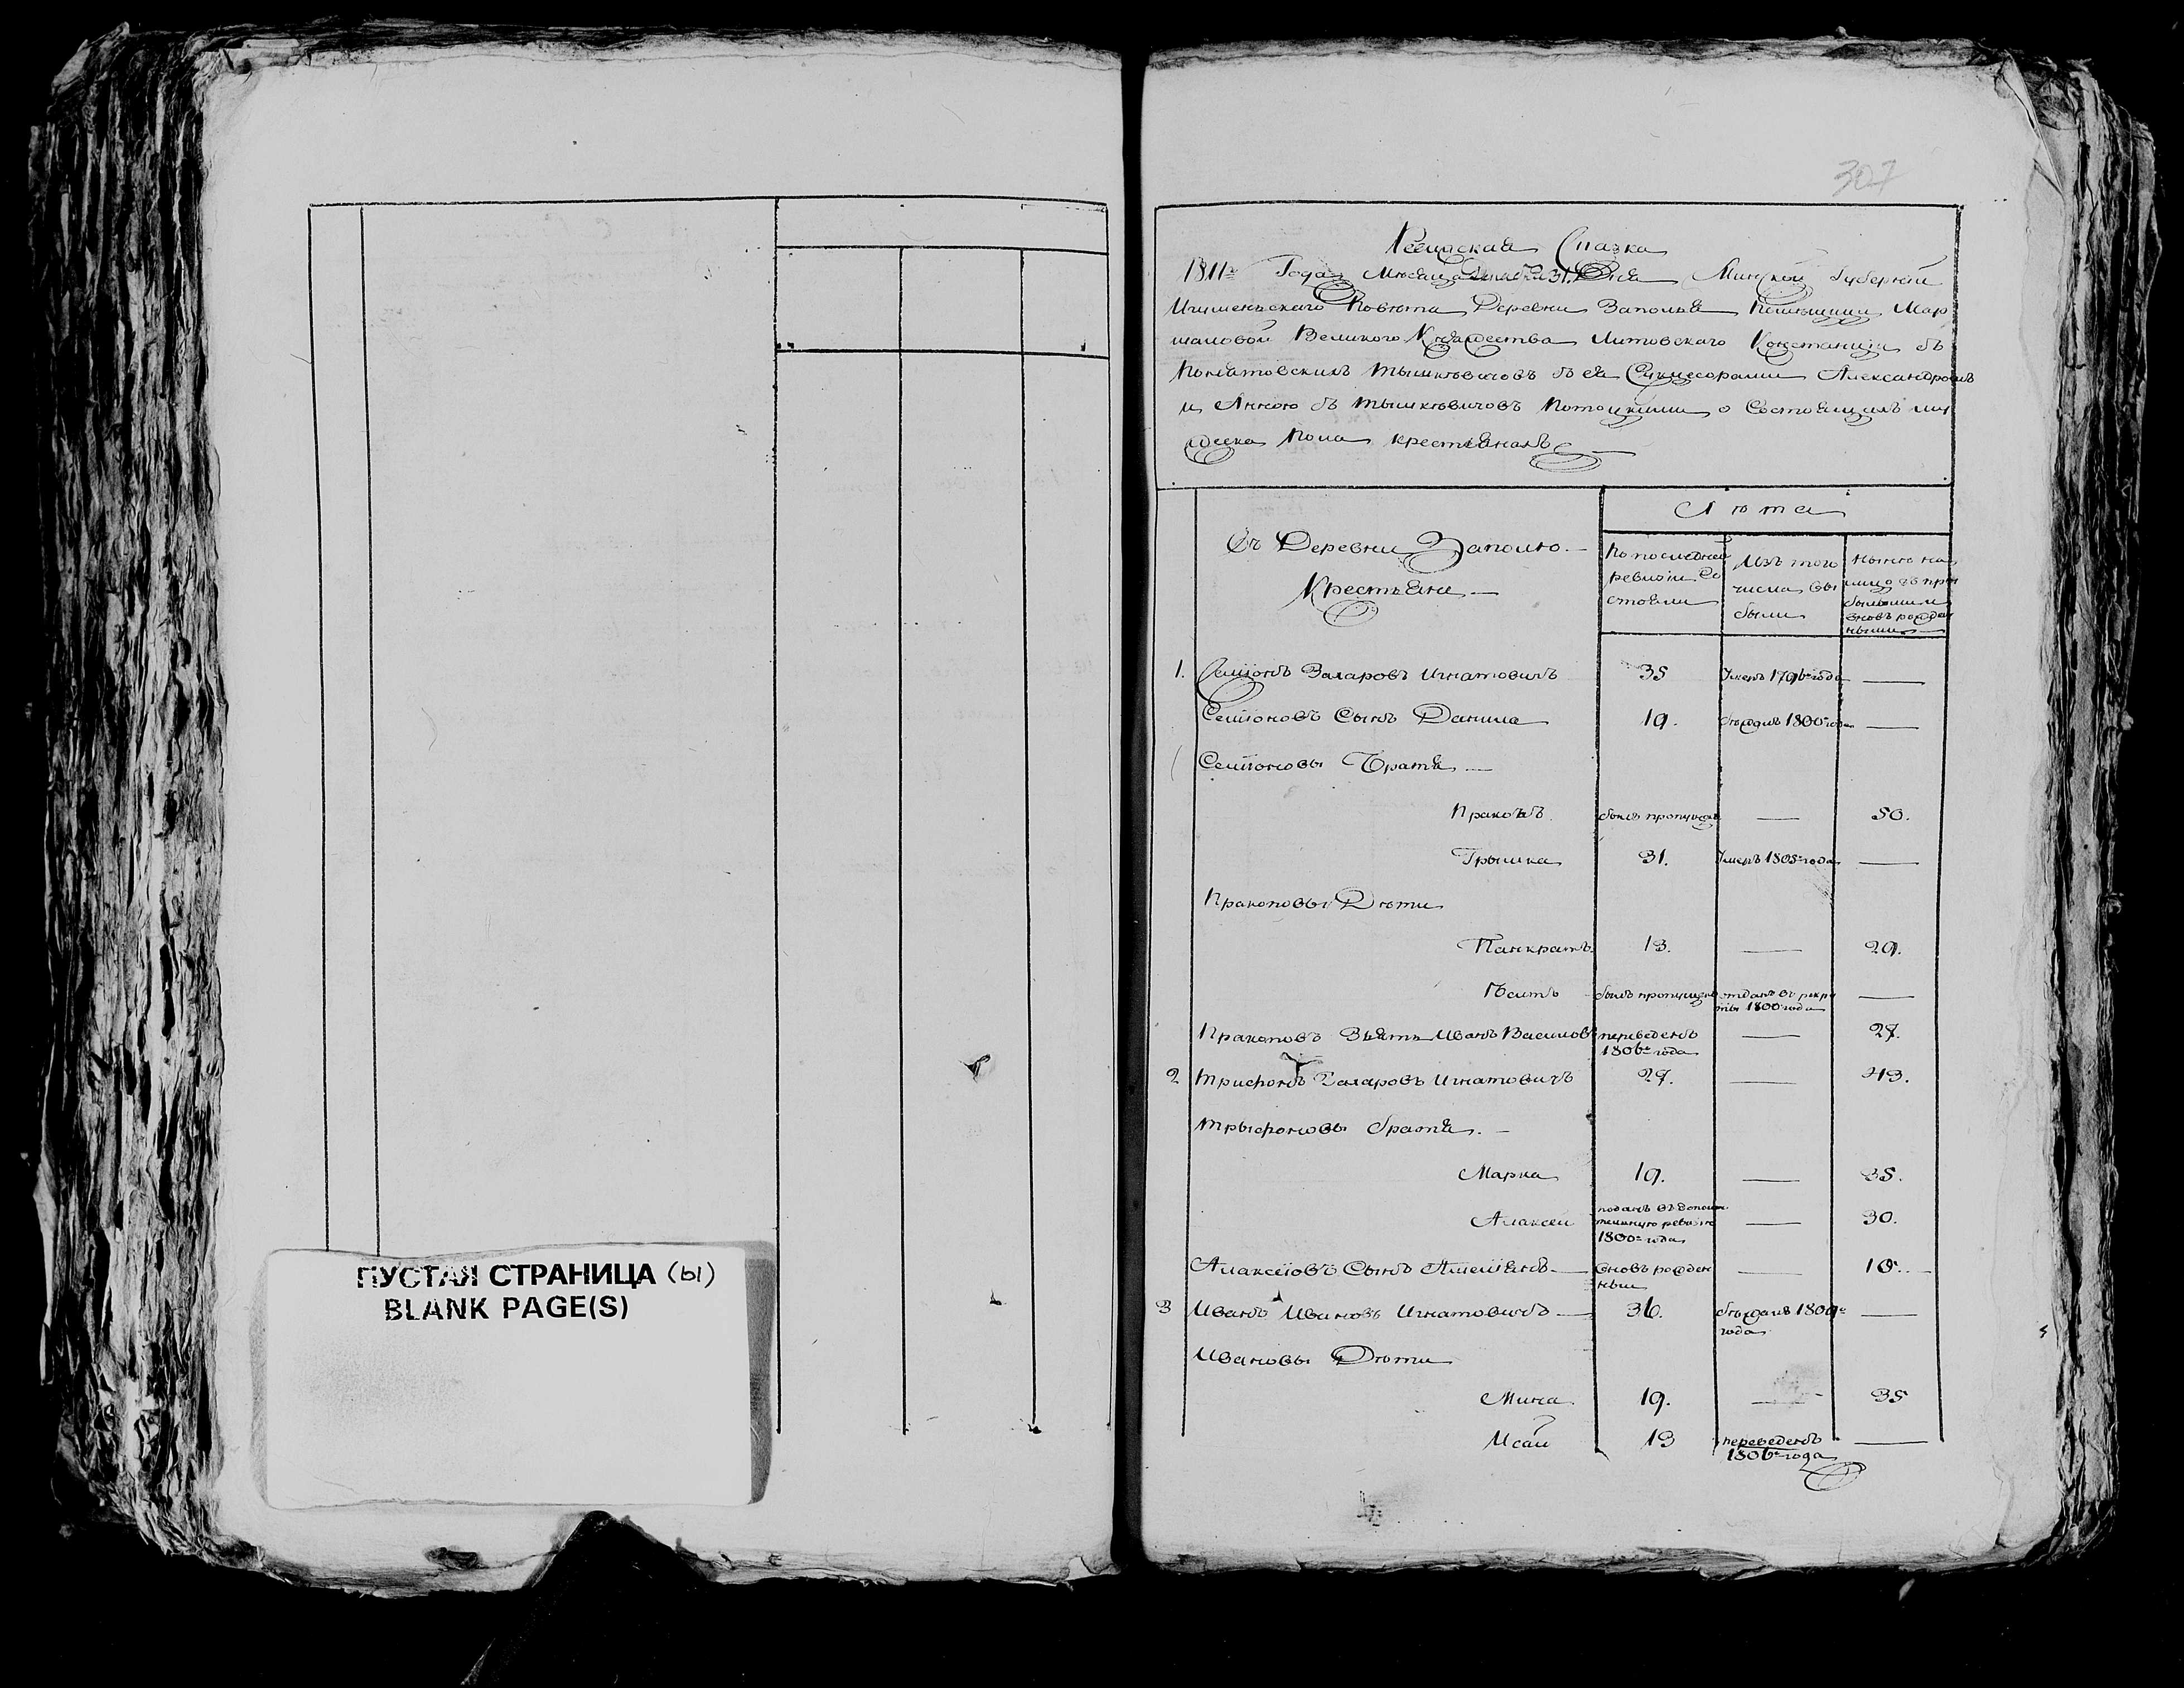 307
Ревизская Сказка
1811го Года Месяца 31 Дня Минской Губернии
Игуменьского Повѣта Деревни Заполья Помѣщици Мар
шаловой Великого Княжества Литовского Констанціи съ
Понятовскихъ Тышкѣвичовъ съ ея Сукцесорами Александромъ
и Анною съ Тышкѣвичовъ Потоцкими о Состоящихъ муж
еска пола крестьянахъ
Въ Деревни Заполю.
Крестьяне
Лѣта
По последней ревизіи Состояли
Изъ того числа выбыли
Нынѣ на лицо съ прибылыми и вновь рожденными
1. Семіонъ Захаровъ Игнатовичъ 35 Умеръ 1796го года —
Семіоновъ Сынъ Данила 19. бѣжалъ 1800го года —
Семіоновы Братья —
Пракопъ былъ пропущенъ — 50.
Грышка 31. Умеръ 1805го года —
Пракоповы Дѣти
Панкратъ 13. — 29.
былъ пропущенъ отданъ въ рекруты 1800го года —
Пракоповъ Зять Иванъ Василовъ переведенъ 1806го года — 27.
2 Трифонъ Захаровъ Игнатовичъ 27. — 43.
Трыфоновы братья. —
Марка 19. — 35.
Алаксеи поданъ въ дополнительную ревизію 1800го года — 30.
Алаксеіовъ Сынъ Амелianъ — вновь рожденный — 10.
3 Иванъ Ивановъ Игнатовичъ — 36. бѣжалъ 1809го года —
Ивановы Дѣти
Мина 19. — 35
Исай 13 переведенъ 1806го года —
ПУСТАЯ СТРАНИЦА (ы)
BLANK PAGE(S)